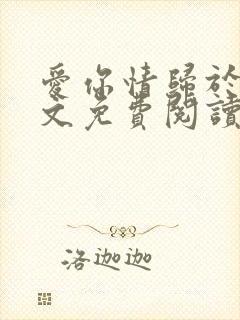 愛你情歸於
文免費閱讀
洛迦迦